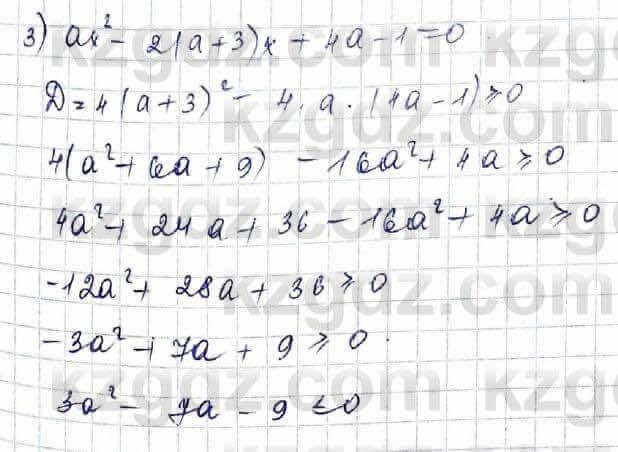 3) ax² - 2(a+3)x + 4a - 1 = 0
D = 4(a+3)² - 4·a·(4a-1) ≥ 0
4(a² + 6a + 9) - 16a² + 4a ≥ 0
4a² + 24a + 36 - 16a² + 4a ≥ 0
-12a² + 28a + 36 ≥ 0
-3a² + 7a + 9 ≥ 0
3a² - 7a - 9 ≤ 0
kzguz.com